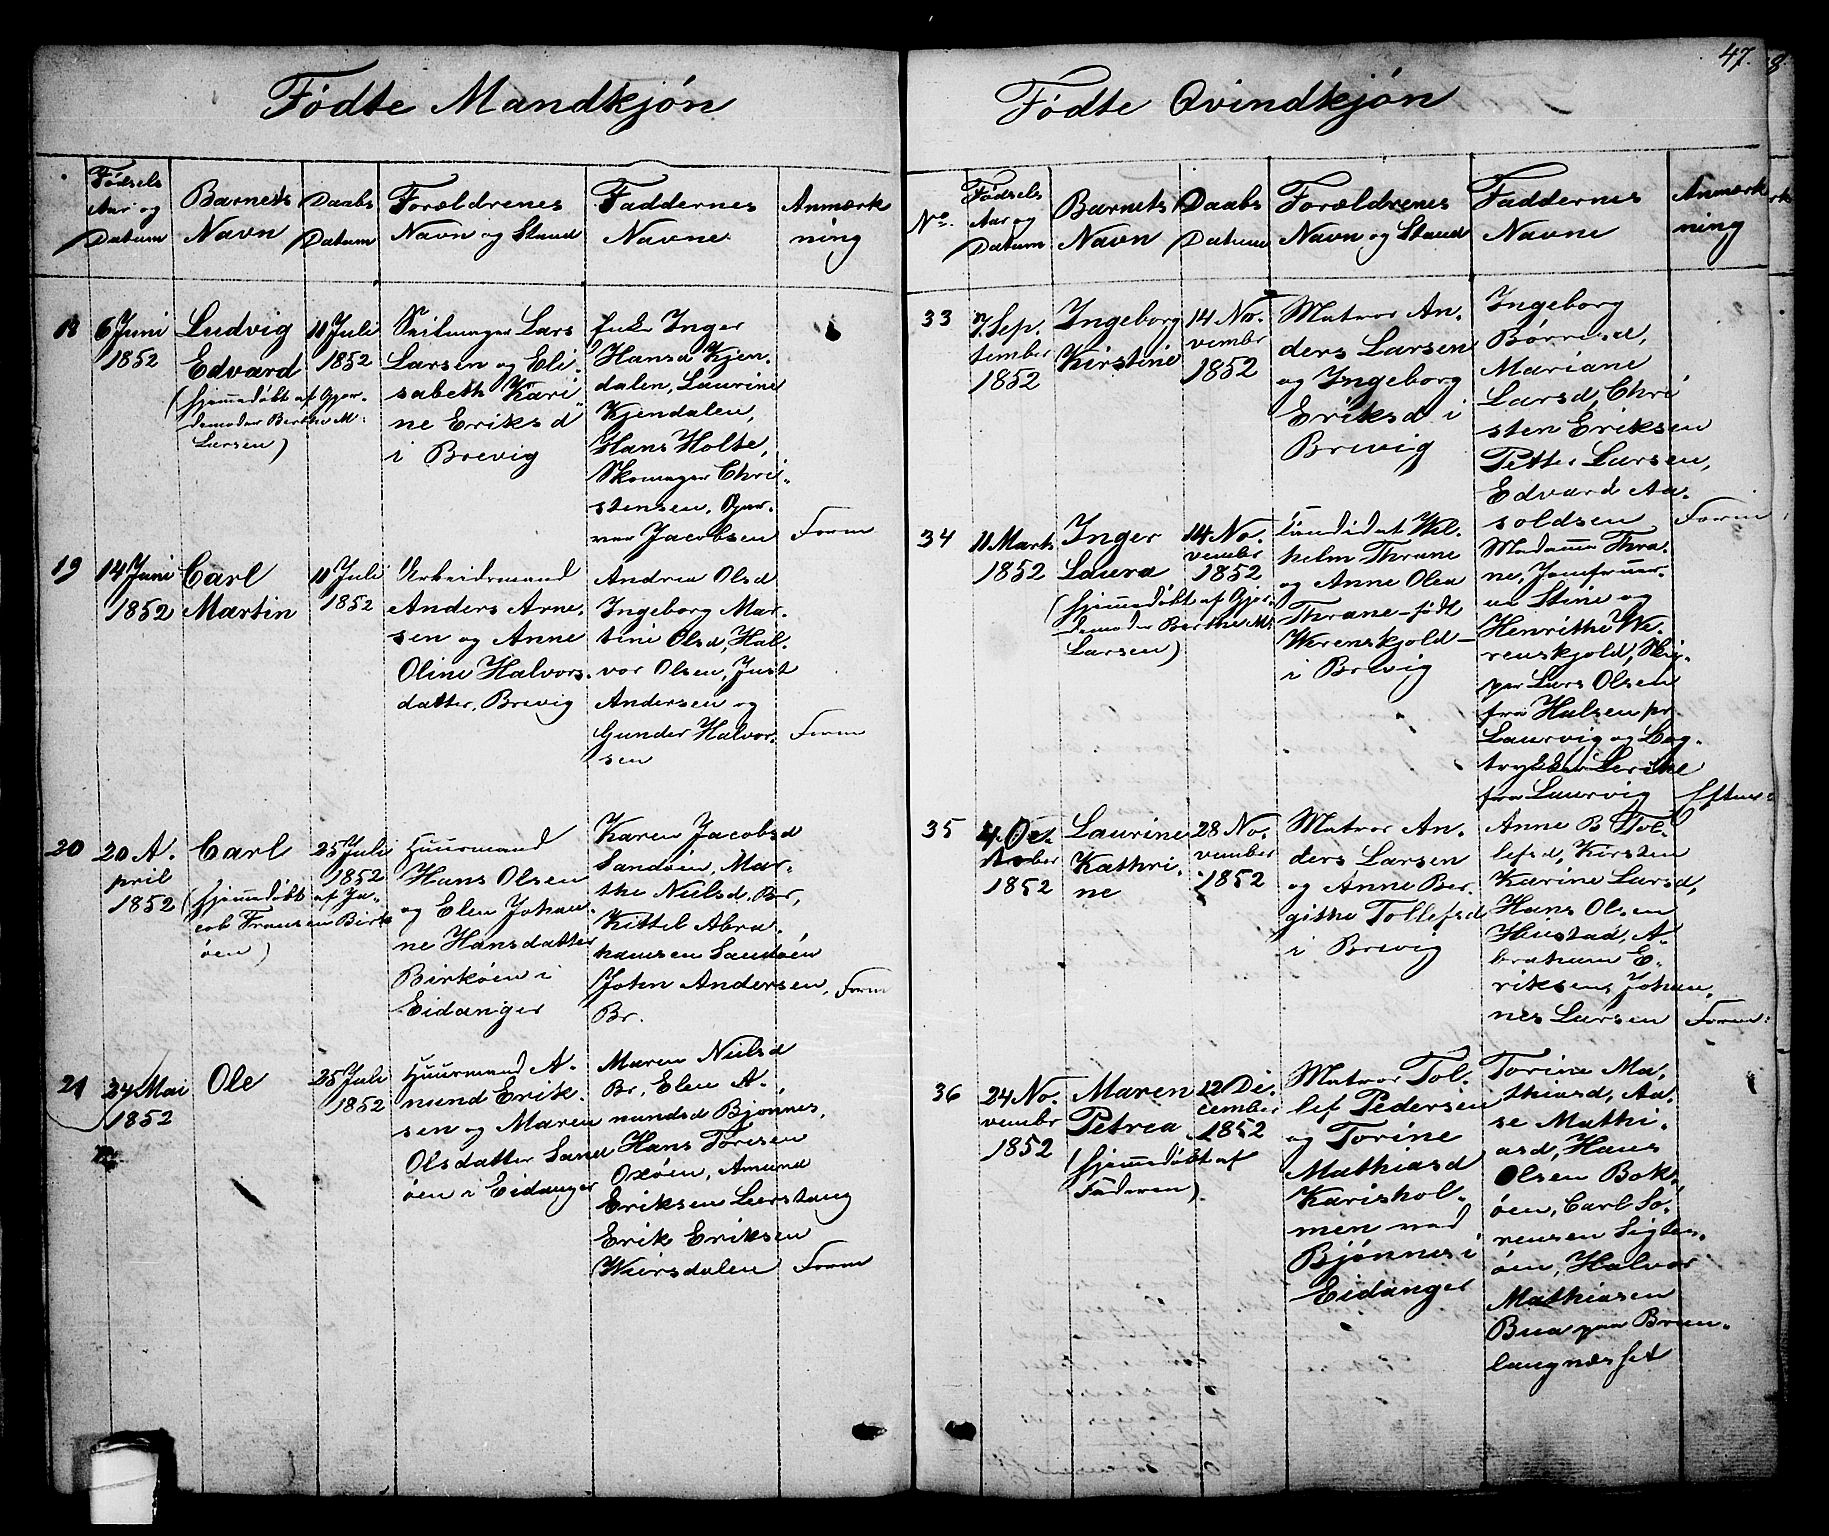 Fødte Mandkjøn
Fødsels
Aar og
Datum
Barnets
Navn
Daabs
Datum
Forældrenes
Navn og Stand
Faddernes
Navne
Anmærk
ning
18
6 Juni
1852
Ludvig
Edvard
(hjemmedøbt af Gjor-
demoder Berthe M:
Larsen)
11 Juli
1852
Seilmager Lars
Larsen og Eli-
sabeth Kari-
ne Eriksd
i Brevig
Inger
Hansd Kjen-
dalen, Laurine
Kjendalen,
Hans Holte,
Skomager Chri-
stensen, Gjar-
ver Jacobsen
Form
19
14 Juni
1852
Carl
Martin
11 Juli
1852
Arbeidsmand
Anders Arne-
sen og Anne
Oline Halvors-
datter, Brevig
Andrea Olsd
Ingeborg Mar-
tine Olsd, Hal-
vor Olsen, Just
Andersen og
Gunder Halvor-
sen
Form
20
20 A-
pril
1852
Carl
(hjemmedøbt af Ja-
cob Fransen Birk-
øen)
25 Juli
1852
Huusmand
Hans Olsen
og Elen Johan-
ne Hansdatter
Birkøen i
Eidanger
Karen Jacobsd
Sandøen, Mar-
the Nielsd. Br,
Kittel Abra-
hamsen Sandøen
John Andersen,
Br.
Form
21
24 Mai
1852
Ole
25 Juli
1852
Huusmand A-
mund Erik-
sen og Maren
Olsdatter Sand-
øen i Eidanger
Maren Nielsd
Br, Elen A-
mundsd Bjønnes,
Hans Toresen
Oxøen, Amund
Eriksen Leerstang
Erik Eriksen
Weirsdalen
Form
47.
Fødte Qvindkjøn
No.
Fødsels
Aar og
Datum
Barnets
Navn
Daabs
Datum
Forældrenes
Navn og Stand
Faddernes
Navne
Anmærk
ning
33
7 Sep-
tember
1852
Ingeborg
Kirstine
14 No-
vember
1852
Matros An-
ders Larsen
og Ingeborg
Eriksd i
Brevig
Ingeborg
Børresd,
Mariane
Larsd, Chri
sten Eriksen
Petter Larsen,
Edvard Aa-
soldsen
Form
34
11 Marts
1852
Inger
Laura
(hjemmedøbt af Gjor-
demoder Berthe M:
Larsen)
14 No-
vembr
1852
Candidat Wil-
helm Thrane
og Anne Olea
Thrane - født
Werenskjold -
i Brevig
Madamme Thra-
ne, Jomfruer-
ne Stine og
Henrithe We-
renskjold, Skip-
per Lars Olsen
fra Halsen pr.
Laurvig og Bog-
trykker Lerche
fra Laurvig
Efterr:
35
4 Oc-
tober
1852
Laurine
Kathri-
ne
28 No-
vember
1852
Matros An-
ders Larsen
og Anne Ber-
githe Tollefsd
i Brevig
Anne B Tol-
lefsd, Kirsten
Karine Larsd,
Hans Olsen
Hustad, A-
braham E-
riksen, Johan-
nes Larsen
Form:
36
24 No-
vembr
1852
Maren
Petrea
(hjemmedøbt af
Faderen)
12 De-
cember
1852
Matros Tol-
lef Pedersen
og Torine
Mathiasd
Karishol-
men ved
Bjønnes i
Eidanger
Torine Ma-
thiasd, Aa-
se Mathi-
asd, Hans
Olsen Bok-
øen, Carl So-
rensen Sigtes-
øen, Halvor
Mathiasen
Bua paa Brun-
langnæsset